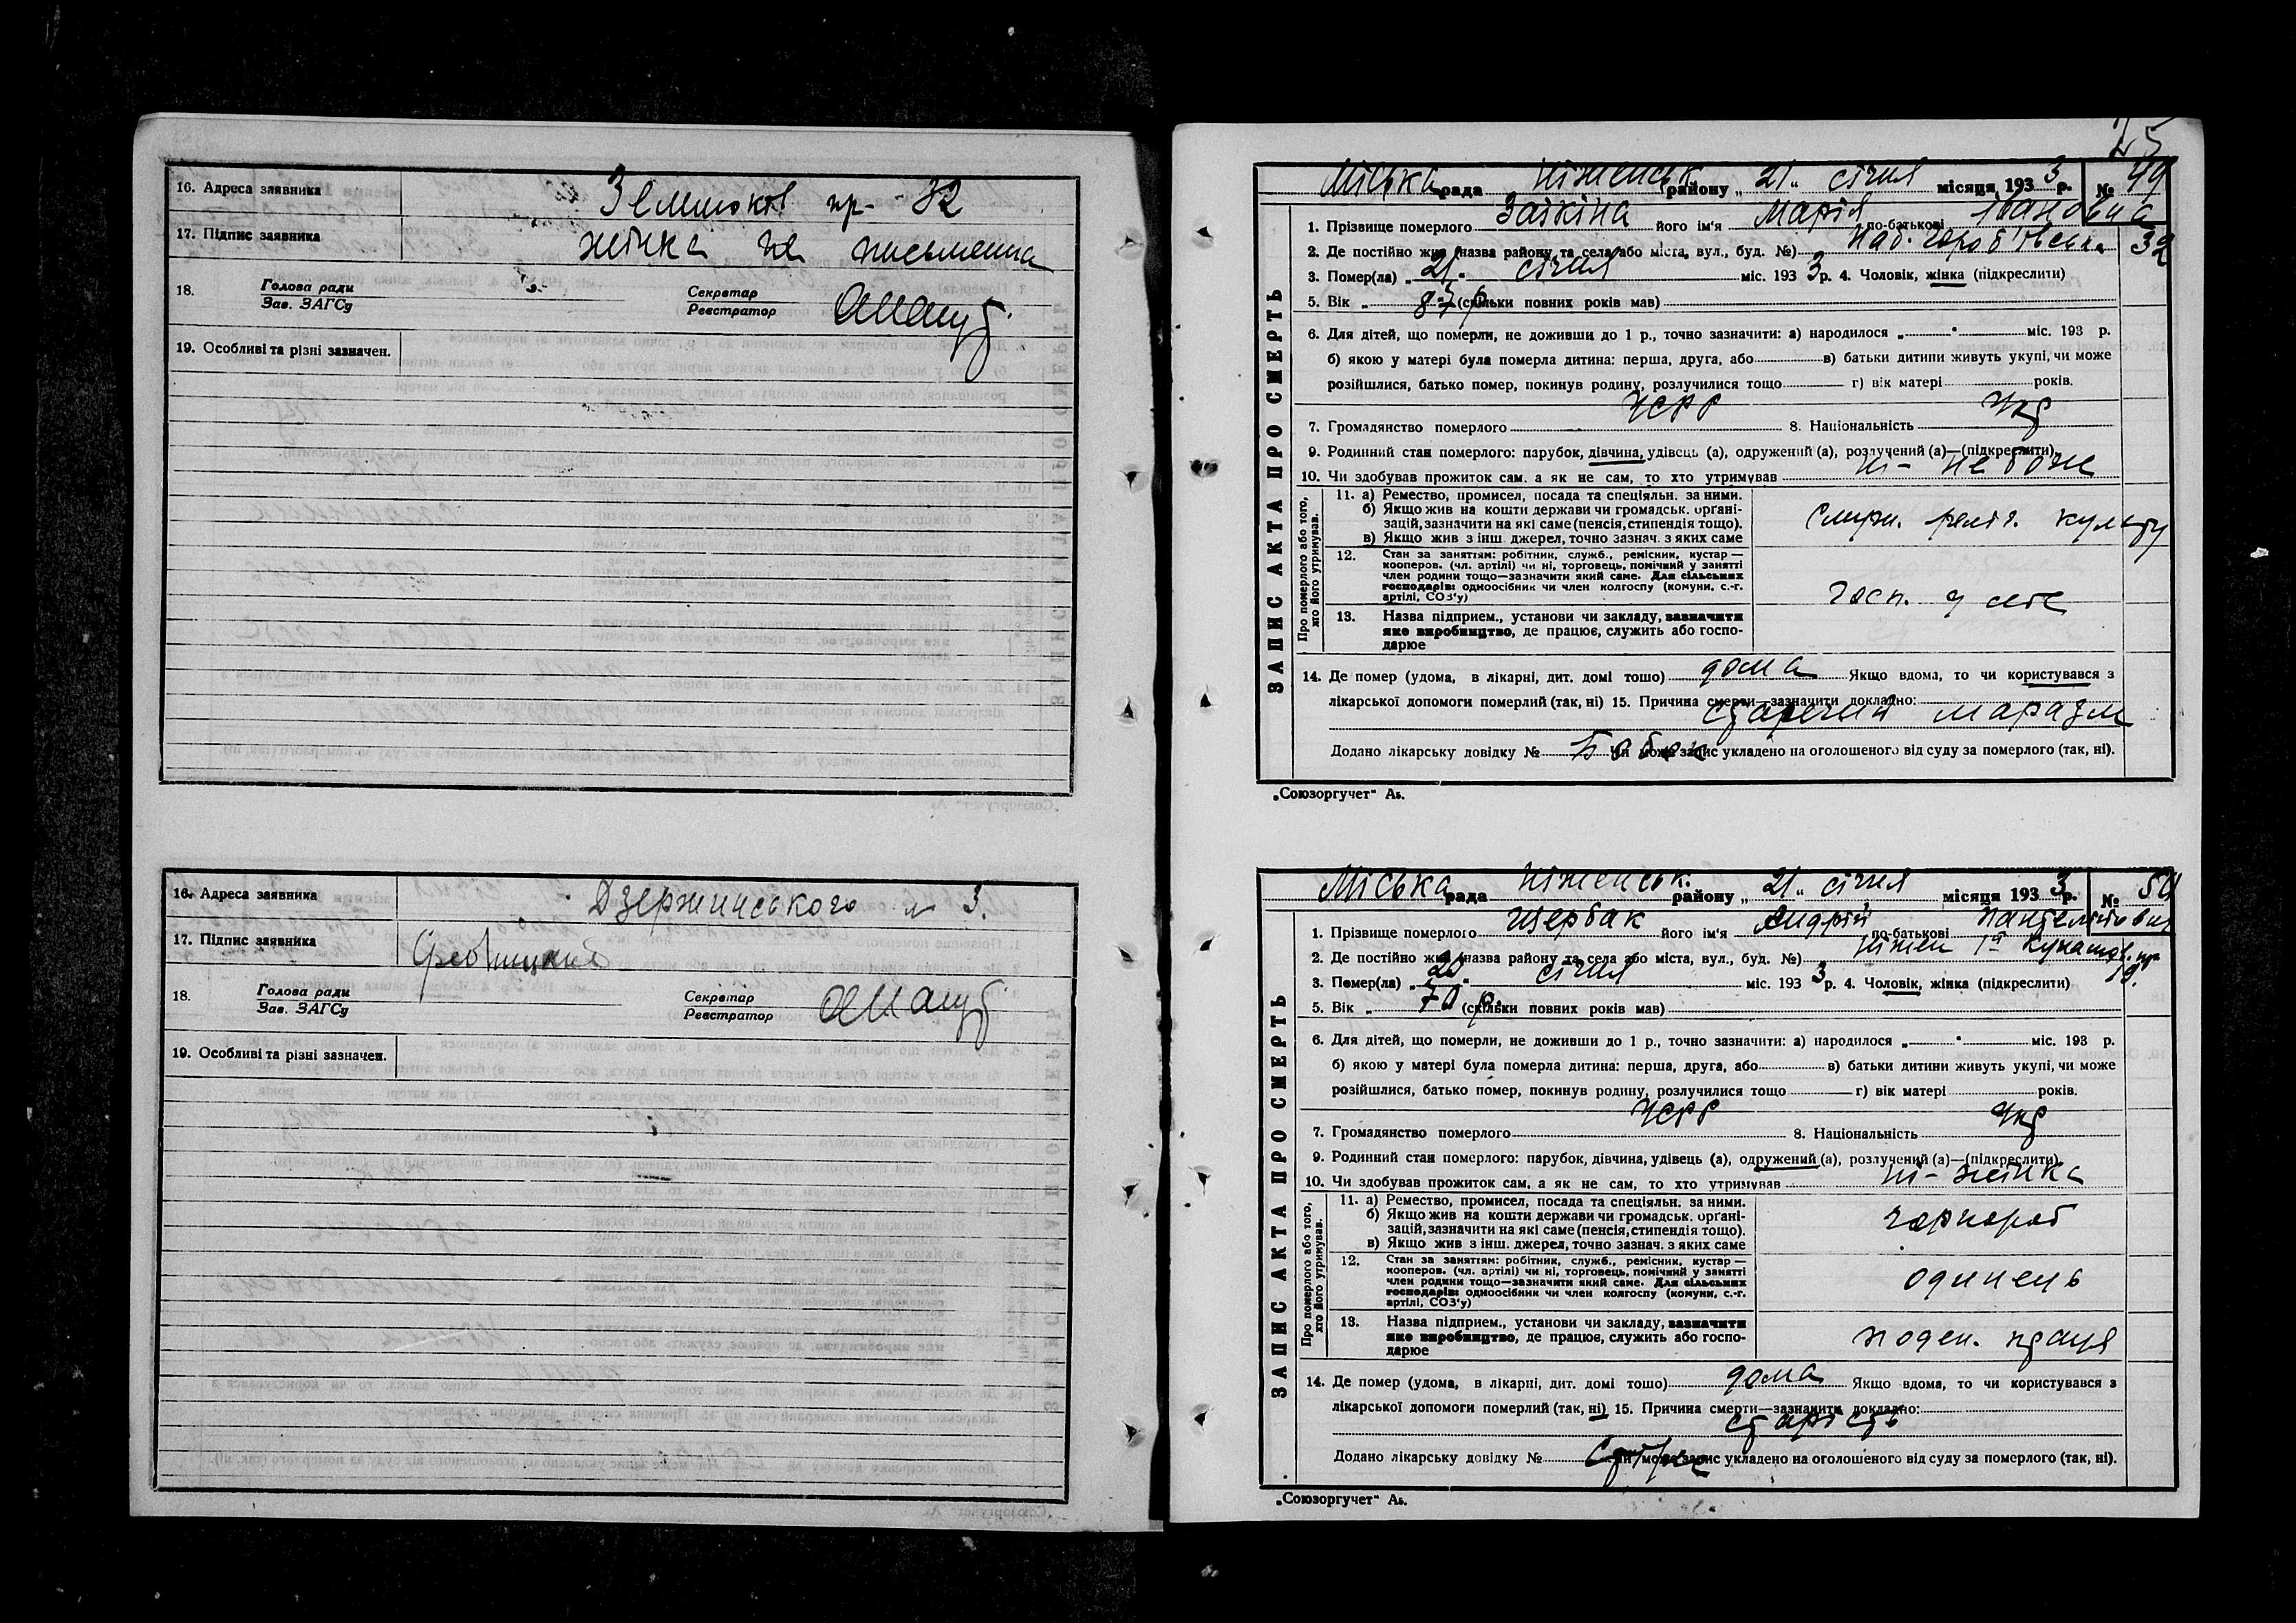 16. Адреса заявника
пр. 32
17. Підпис заявника жінка не письменна
18. Голова ради
Зав. ЗАГСу
Секретар
Реєстратор
19. Особливі та різні зазначен.
16. Адреса заявника Дзержинського № 3.
17. Підпис заявника
18. Голова ради
Зав. ЗАГСу
Секретар
Реєстратор
19. Особливі та різні зазначен.
25
ЗАПИС АКТА ПРО СМЕРТЬ
Міська рада Ніженськ району „21“ січня місяця 1933 р. № 49
1. Прізвище померлого Заікіна його ім'я Марія по-батькові Івановна
2. Де постійно жив (назва району та села або міста, вул., буд. №) 32
3. Помер(ла) „21“ січня міс. 1933 р. 4. Чоловік, жінка (підкреслити)
5. Вік „83 р. (скільки повних років мав)
6. Для дітей, що померли, не доживши до 1 р., точно зазначити: а) народилося „ “ міс. 193 р.
б) якою у матері була померла дитина: перша, друга, або в) батьки дитини живуть укупі, чи може
розійшлися, батько помер, покинув родину, розлучилися тощо г) вік матері років.
7. Громадянство померлого УСРР 8. Національність Укр
9. Родинний стан померлого: парубок, дівчина, удівець (а), одружений (а), розлучений (а)—(підкреслити)
10. Чи здобував прожиток сам, а як не сам, то хто утримував ні -
Про померлого або того, хто його утримував.
11. а) Ремество, промисел, посада та спеціяльн. за ними.
б) Якщо жив на кошти держави чи громадськ. орґані-
зацій, зазначити на які саме (пенсія, стипендія тощо).
в) Якщо жив з інш. джерел, точно зазнач. з яких саме
культу
12. Стан за заняттям: робітник, служб., ремісник, кустар—
кооперов. (чл. артілі) чи ні, торговець, помічний у занятті
член родини тощо—зазначити який саме. Для сільських
господарів: одноосібник чи член колгоспу (комуни, с.-г.
артілі, СОЗ'у)
госп. у
13. Назва підприєм., установи чи закладу, зазначити
яке виробництво, де працює, служить або госпо-
дарює
14. Де помер (удома, в лікарні, дит. домі тощо) дома Якщо вдома, то чи користувався з
лікарської допомоги померлий (так, ні) 15. Причина смерти—зазначити докладно:
старечий маразм
Додано лікарську довідку № Чи може запис укладено на оголошеного від суду за померлого (так, ні).
„Союзоргучет“ А₅.
ЗАПИС АКТА ПРО СМЕРТЬ
Міська рада Ніженськ. району „21“ січня місяця 1933 р. № 50
1. Прізвище померлого Щербак його ім'я Андрій по-батькові Пантелимович
2. Де постійно жив (назва району та села або міста, вул., буд. №) Ніжен 19.
3. Помер(ла) „20“ січня міс. 1933 р. 4. Чоловік, жінка (підкреслити)
5. Вік „70 р. (скільки повних років мав)
6. Для дітей, що померли, не доживши до 1 р., точно зазначити: а) народилося „ “ міс. 193 р.
б) якою у матері була померла дитина: перша, друга, або в) батьки дитини живуть укупі, чи може
розійшлися, батько помер, покинув родину, розлучилися тощо г) вік матері років.
7. Громадянство померлого УСРР 8. Національність Укр
9. Родинний стан померлого: парубок, дівчина, удівець (а), одружений (а), розлучений (а)—(підкреслити)
10. Чи здобував прожиток сам, а як не сам, то хто утримував ні - жінка
Про померлого або того, хто його утримував.
11. а) Ремество, промисел, посада та спеціяльн. за ними.
б) Якщо жив на кошти держави чи громадськ. орґані-
зацій, зазначити на які саме (пенсія, стипендія тощо).
в) Якщо жив з інш. джерел, точно зазнач. з яких саме
чорнороб
12. Стан за заняттям: робітник, служб., ремісник, кустар—
кооперов. (чл. артілі) чи ні, торговець, помічний у занятті
член родини тощо—зазначити який саме. Для сільських
господарів: одноосібник чи член колгоспу (комуни, с.-г.
артілі, СОЗ'у)
одинець
13. Назва підприєм., установи чи закладу, зазначити
яке виробництво, де працює, служить або госпо-
дарює
поден. праця
14. Де помер (удома, в лікарні, дит. домі тощо) дома Якщо вдома, то чи користувався з
лікарської допомоги померлий (так, ні) 15. Причина смерти—зазначити докладно:
старість
Додано лікарську довідку № Чи може запис укладено на оголошеного від суду за померлого (так, ні).
„Союзоргучет“ А₅.